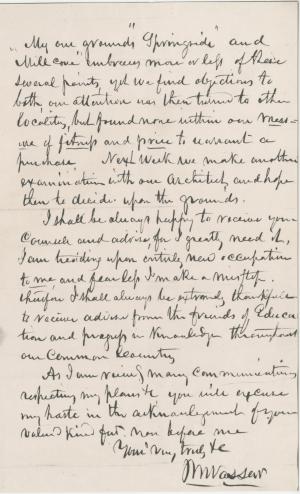 "My own grounds "Springside" and
Mill cove" embraces more or less of these
several points, yet we find objections to
both, our attention was then turned to other
locality, but found none within our meas=
ure of fitness and price to warrant a
purchase. Next Week we make another
examination with our Architect, and hope
then to decide upon the grounds.
I shall be always happy to receive your
Councils and advise, for I greatly need it,
I am treading upon entirely new occupation
to me, and fear lest I make a misstep.
therefore I shall always be extremely thankful
to receive advise from the friends of Educa
tion and progress in Knowledge throughout
our Common Country
As I am recieving many communications
respecting my plans &c you will excuse
my haste in the acknowledgement of your
valued kind now before me
Your very truly &c
M Vassar